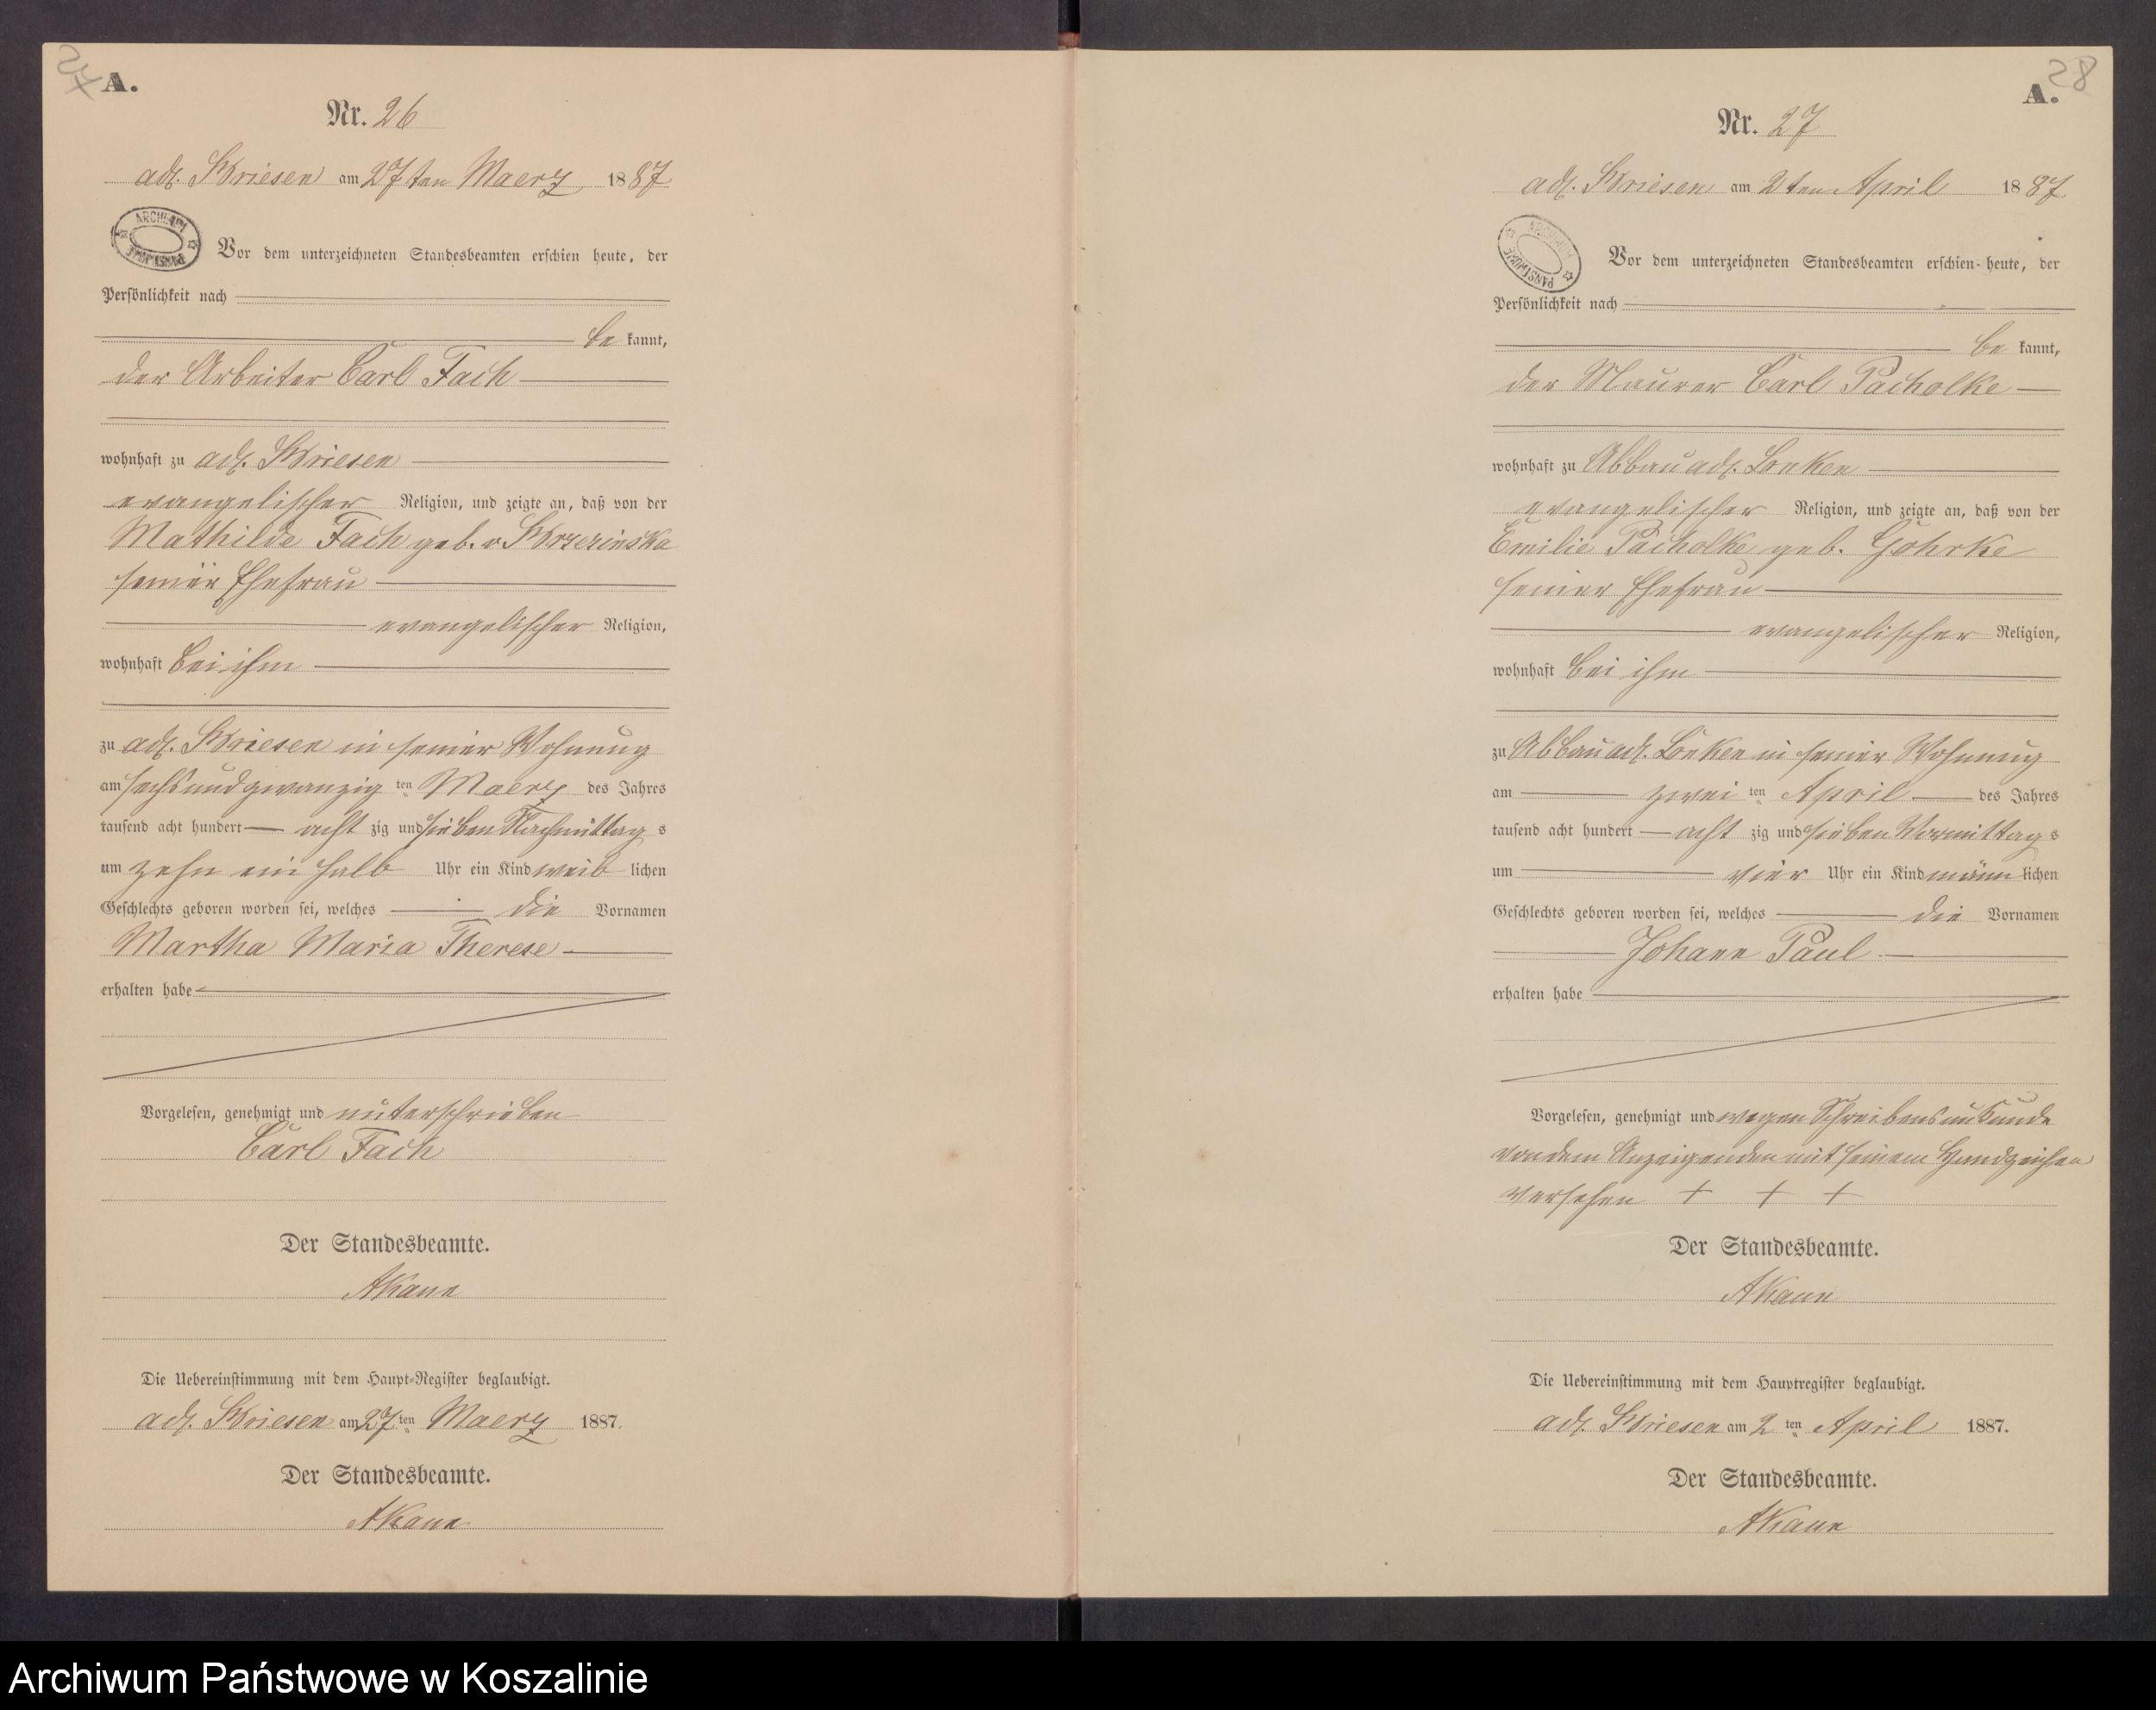 27
A.
Nr. 26
adl. Kriesen am 27ten Maerz 1887
ARCHIWUM PAŃSTWOWE
Vor dem unterzeichneten Standesbeamten erschien heute, der
Persönlichkeit nach
be kannt,
der Arbeiter Carl Fach
wohnhaft zu adl. Kriesen
evangelischer Religion, und zeigte an, daß von der
Mathilde Fach geb. v
seiner Ehefrau
evangelischer Religion,
wohnhaft bei ihm
zu adl. Kriesen in seiner Wohnung
am sechsundzwanzig ten Maerz des Jahres
tausend acht hundert acht zig und sieben Nachmittag s
um zehn ein halb Uhr ein Kind weib lichen
Geschlechts geboren worden sei, welches die Vornamen
Martha Maria Therese
erhalten habe
Vorgelesen, genehmigt und unterschrieben
Carl Fach
Der Standesbeamte.
AKann
Die Uebereinstimmung mit dem Haupt-Register beglaubigt.
adl. Kriesen am 27ten Maerz 1887.
Der Standesbeamte.
AKann
28
A.
Nr. 27
adl. Kriesen am 2ten April 1887
ARCHIWUM PAŃSTWOWE
Vor dem unterzeichneten Standesbeamten erschien heute, der
Persönlichkeit nach
be kannt,
der Maurer Carl Pacholke
wohnhaft zu Abbau adl. Lonken
evangelischer Religion, und zeigte an, daß von der
Emilie Pacholke geb. Gohrke
seiner Ehefrau
evangelischer Religion,
wohnhaft bei ihm
zu Abbau adl. Lonken in seiner Wohnung
am zwei ten April des Jahres
tausend acht hundert acht zig und sieben Vormittag s
um vier Uhr ein Kind männ lichen
Geschlechts geboren worden sei, welches die Vornamen
Johann Paul
erhalten habe
Vorgelesen, genehmigt und wegen Schreibensunkunde
von dem Anzeigenden mit seinem Handzeichen
versehen + + +
Der Standesbeamte.
AKann
Die Uebereinstimmung mit dem Hauptregister beglaubigt.
adl. Kriesen am 2 ten April 1887.
Der Standesbeamte.
AKann
Archiwum Państwowe w Koszalinie